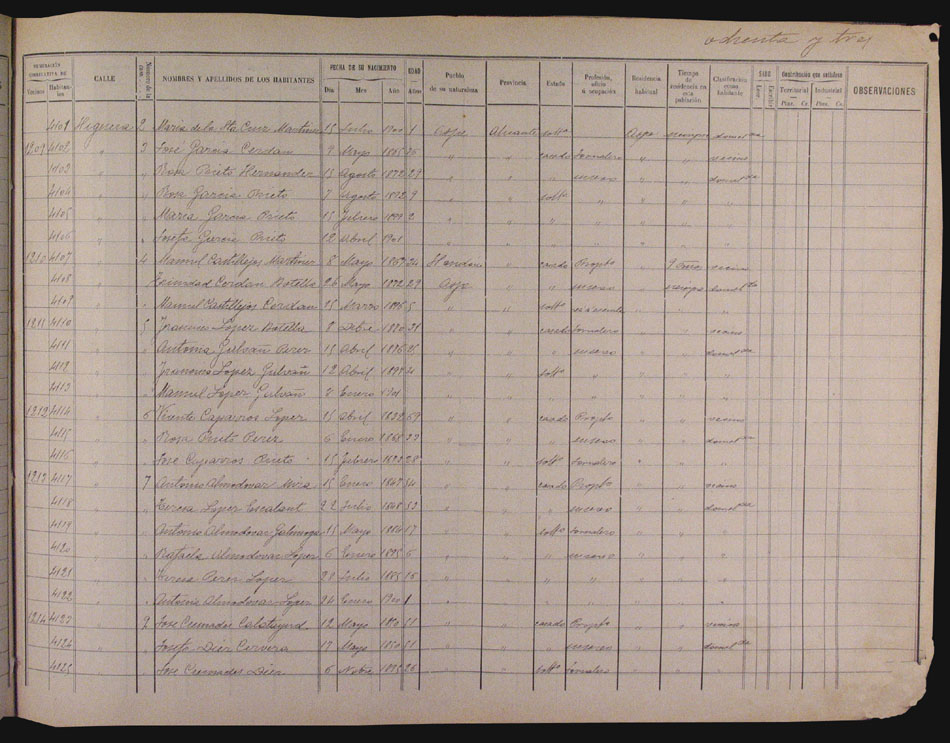 ochenta y tres
NUMERACIÓN CORRELATIVA DE Vecinos Habitantes CALLE NOMBRES Y APELLIDOS DE LOS HABITANTES FECHA DE SU NACIMIENTO Día Mes Año EDAD Años Pueblo de su naturaleza Provincia Estado Profesión, oficio ú ocupación Residencia habitual Tiempo de residencia en esta población Clasificación como habitante SABE Leer Escribir Contribución que satisface Territorial Ptas. Cs. Industrial Ptas. Cs. OBSERVACIONES
4101 Higuera 2 Maria de la Sta Cruz Martinez 15 Julio 1900 1 Aspe Alicante soltª Aspe siempre domctda
1209 4102 " 3 José Garcia Cerdan 9 Mayo " " casado Jornalero " " vecino
4103 " " Rosa Prieto Hernandez 13 Agosto 1872 29 " " " su sexo " " domctda
4104 " " Rosa Garcia Prieto 7 Agosto 1892 9 " " soltª " " "
4105 " " Maria Garcia Prieto 15 Febrero 1899 2 " " " " " "
4106 " " Josefa Garcia Prieto 12 Abril 1901 " " " " " "
1210 4107 " 4 Manuel Castillejos Martinez 8 Mayo 1867 34 " casado Propto " 9 años vecino
4108 " " Trinidad Cerdan Botella 26 Mayo 1872 29 Aspe " " su sexo " siempre domctda
4109 " " Manuel Castillejos Cerdan 25 Marzo 1896 5 " " soltº " " "
1211 4110 " 5 Francisco Lopez Botella 8 1870 31 " " casado Jornalero " " vecino
4111 " " Antonia Galvañ Perez 15 Abril 1876 25 " " " su sexo " " domctda
4112 " " Francisco Lopez Galvañ 12 Abril 1897 4 " " soltº " " "
4113 " " Manuel Lopez Galvañ 2 Enero 1901 " " " " " "
1212 4114 " 6 Vicente Caparros Lopez 15 Abril 1832 69 " " casado Propto " " vecino
4115 " " Rosa Prieto Perez 6 Enero " " " su sexo " " domctda
4116 " " José Caparros Prieto 15 Febrero 1873 28 " " soltº Jornalero " "
1213 4117 " 7 Antonio Almodovar Mira 15 Enero 1847 54 " " casado Propto " " vecino
4118 " " Teresa Lopez Escalant 22 Julio 1848 53 " " " su sexo " " domctda
4119 " " Antonio Almodovar 15 Mayo 1884 17 " " soltº Jornalero " " "
4120 " " Rafaela Almodovar Lopez 6 Enero 1895 6 " " " su sexo " " "
4121 " " Teresa Perez Lopez 23 Julio 1885 16 " " " " " " "
4122 " " Antonio Almodovar Lopez 24 Enero 1900 1 " " " " " "
1214 4123 " 9 José Cremades Calatayud 12 Mayo 1850 51 " " casado Propto " " vecino
4124 " " Josefa Diez Cervera 17 Mayo 1850 51 " " " su sexo " " domctda
4125 " " José Cremades Diez 6 Nobre 1875 26 " " soltº Jornalero " "